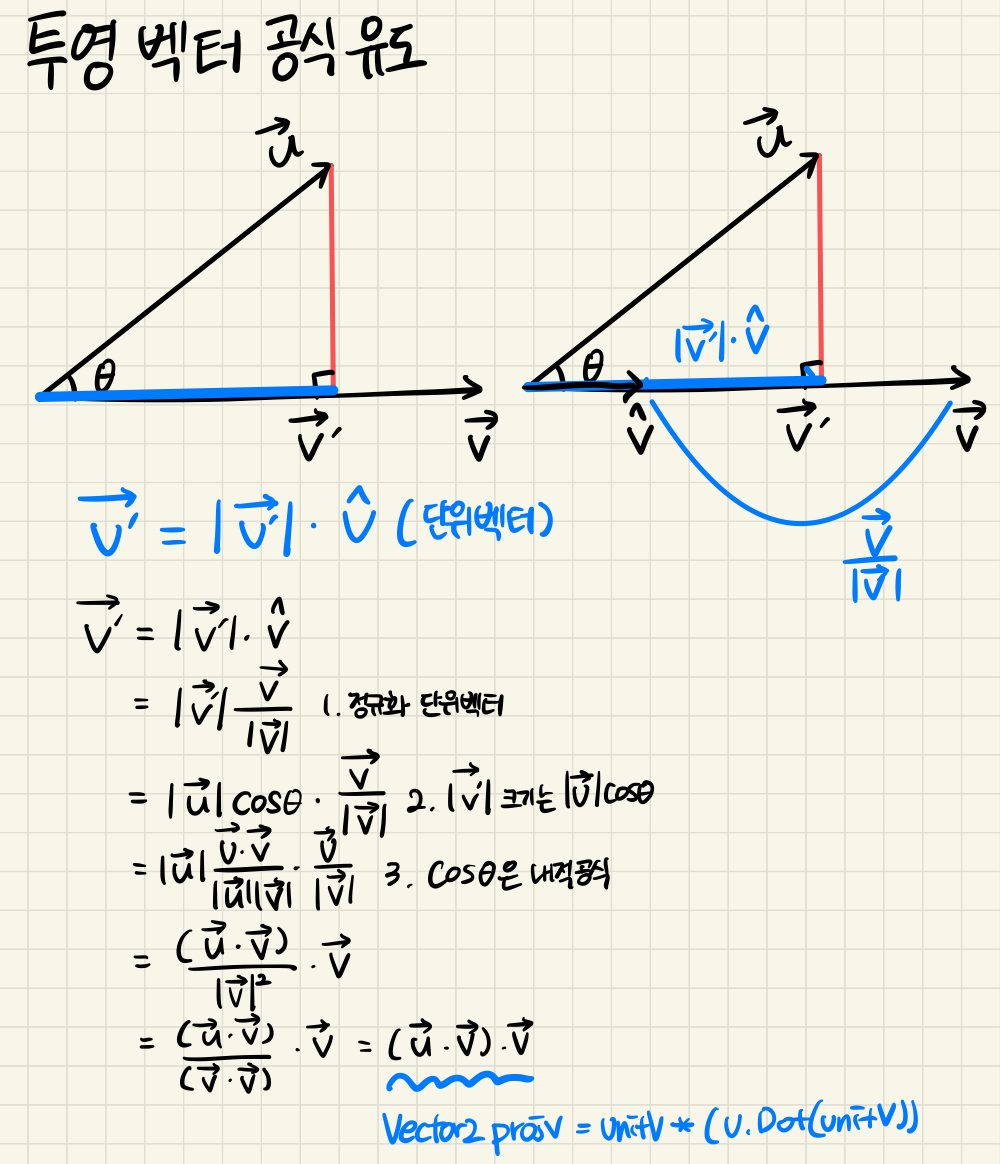 투영 벡터 공식 유도
u⃗ u⃗
|v⃗'|·v̂
θ θ
v⃗' v⃗ v̂ v⃗' v⃗
v⃗' = |v⃗'|·v̂ (단위벡터)
v⃗/|v⃗|
v⃗' = |v⃗'|·v̂
= |v⃗'| v⃗/|v⃗| 1. 정규화 단위벡터
= |u⃗| cosθ · v⃗/|v⃗| 2. |v⃗'| 크기는 |u⃗|cosθ
= |u⃗| u⃗·v⃗/|u⃗||v⃗| · v⃗/|v⃗| 3. cosθ은 내적공식
= (u⃗·v⃗)/|v⃗|² · v⃗
= (u⃗·v⃗)/(v⃗·v⃗) · v⃗ = (u⃗·v⃗)·v⃗
Vector2 projV = unitV * (u.Dot(unitV))